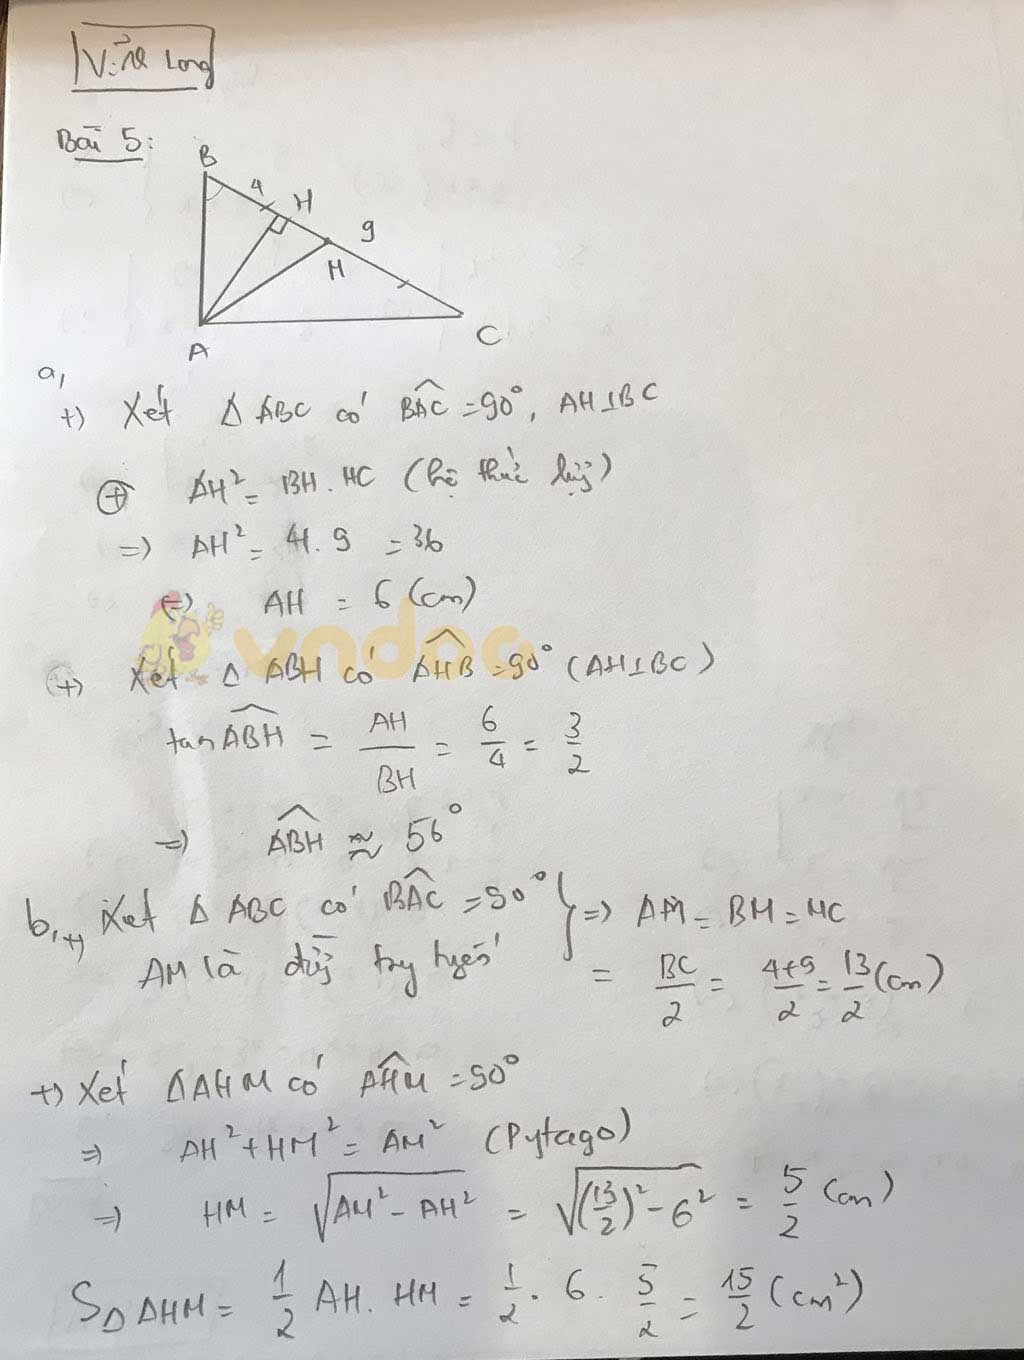 Vĩnh Long
Bài 5:
B
4
H
9
M
A
C
a,
+) Xét Δ ABC có BAC = 90°, AH⊥BC
⊕ AH² = BH . HC (hệ thức lượng)
=> AH² = 4 . 9 = 36
<=> AH = 6 (cm)
vndoc
+) Xét Δ ABH có AHB = 90° (AH⊥BC)
tan ABH = AH/BH = 6/4 = 3/2
=> ABH ≈ 56°
b, +) Xét Δ ABC có BAC = 90° } => AM = BM = MC
AM là đường trung tuyến = BC/2 = (4+9)/2 = 13/2 (cm)
+) Xét ΔAHM có AHM = 90°
=> AH² + HM² = AM² (Pytago)
=> HM = √(AM² - AH²) = √((13/2)² - 6²) = 5/2 (cm)
SΔAHM = 1/2 AH . HM = 1/2 . 6 . 5/2 = 15/2 (cm²)